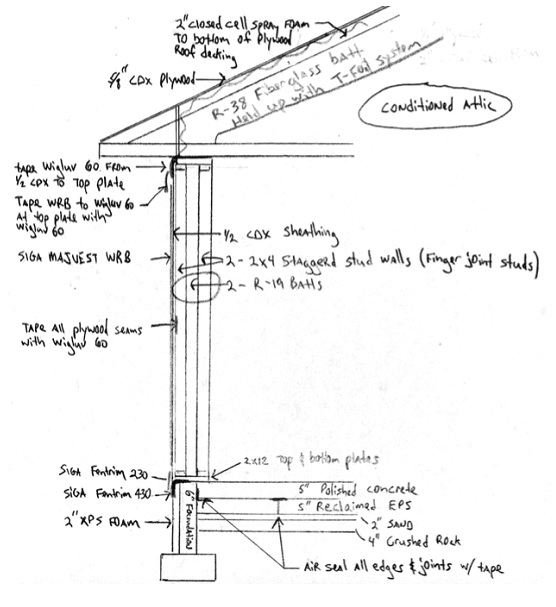 2" closed cell spray foam
TO bottom of Plywood
Roof decking
5/8" CDX Plywood
R-38 Fiberglass batt
Hold up with T-Foil system
CONDITIONED Attic
tape Wigluv 60 FROM
1/2 CDX to Top Plate
TAPE WRB to Wigluv 60
At top plate with
Wigluv 60
1/2 CDX Sheathing
SIGA MAJVEST WRB
2 - 2x4 STAGGERD STUD WALLS (Finger joint studs)
2 - R-19 BATTS
TAPE All plywood seams
with Wigluv 60
2x12 Top & bottom plates
SIGA Fentrim 230
SIGA Fentrim 430
5" Polished concrete
6" Foundation
5" Reclaimed EPS
2" XPS FOAM
2" SAND
4" Crushed Rock
AIR SEAL All edges & joints w/ tape